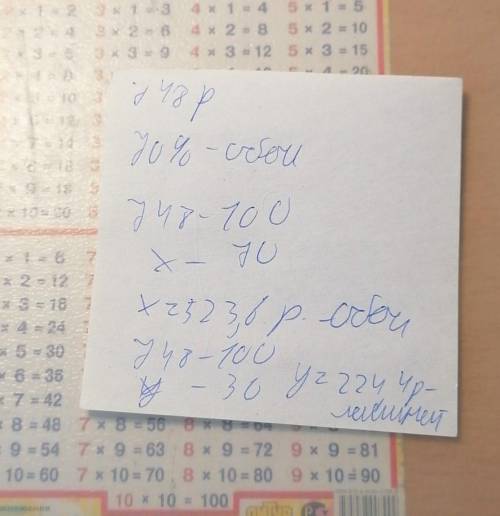 × 1 = 2
3 × 1 = 3
4 × 1 = 4
5 × 1 = 5
× 2 = 4
3 × 2 = 6
4 × 2 = 8
5 × 2 = 10
3 × 3 = 9
4 × 3 = 12
5 × 3 = 15
5 × 4 = 20
748 р
70% - обои
748 - 100
x - 70
x = 523,6 р. - обои
748 - 100
y - 30 y = 224,4 р -
ламинат
× 9 = 18
× 10 = 20
× 1 = 6
× 2 = 12
× 3 = 18
× 4 = 24
× 5 = 30
× 6 = 36
× 7 = 42
× 8 = 48
7 × 8 = 56
8 × 8 = 64
9 × 8 = 72
× 9 = 54
7 × 9 = 63
8 × 9 = 72
9 × 9 = 81
10 = 60
7 × 10 = 70
8 × 10 = 80
9 × 10 = 90
10 × 10 = 100